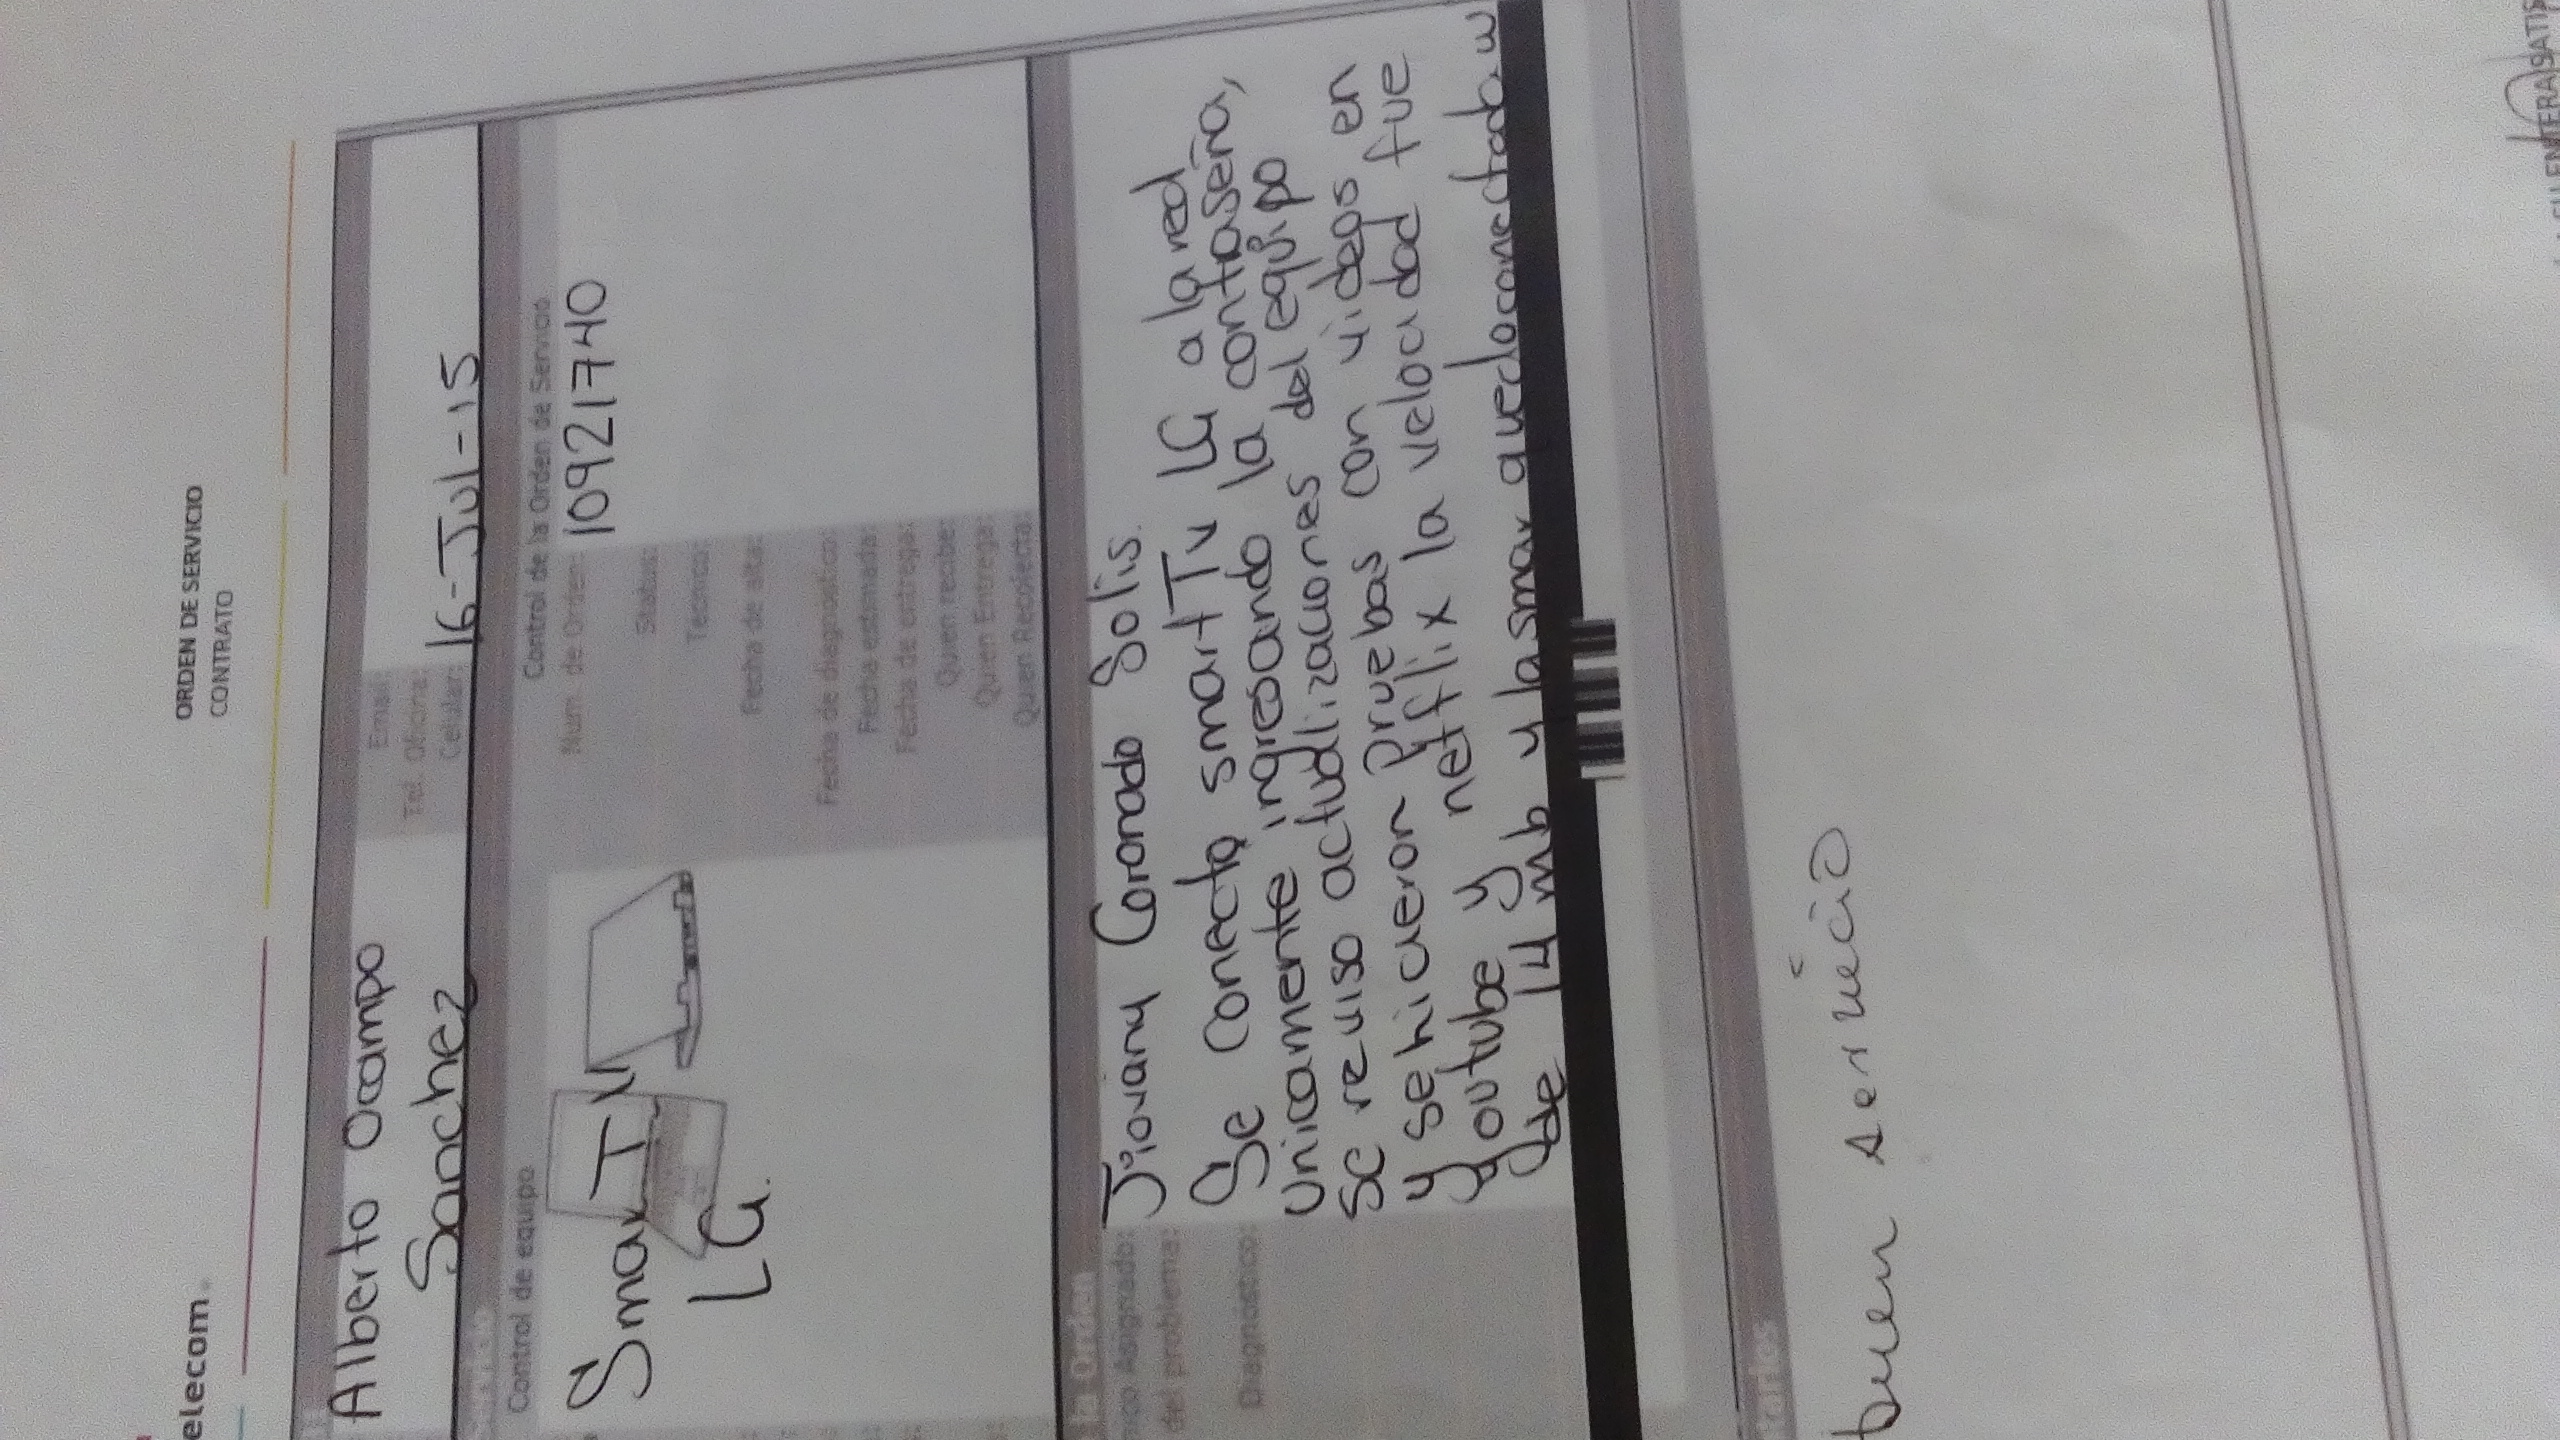 elecom.
ORDEN DE SERVICIO
CONTRATO
Alberto Ocampo
Sanchez
Email:
Tel. Oficina:
Celular:
16-Jul-15
Control de equipo
Control de la Orden de Servicio
Smar TV
LG.
Num. de Orden: 10921740
Status:
Tecnico:
Fecha de alta:
Fecha de diagnostico:
Fecha estimada:
Fecha de entrega:
Quien recibe:
Quien Entrega:
Quien Recolecta:
la Orden
nico Asignado: Jiovany Coronado Solis.
del problema:
Diagnostico:
Se conecto smart Tv LG a la red
unicamente ingresando la contaseña,
se reviso actualizaciones del equipo
y se hicieron pruebas con videos en
youtube y netflix la velocidad fue
de 14 mb y la smar quedo conectada
tarios
buen servicio